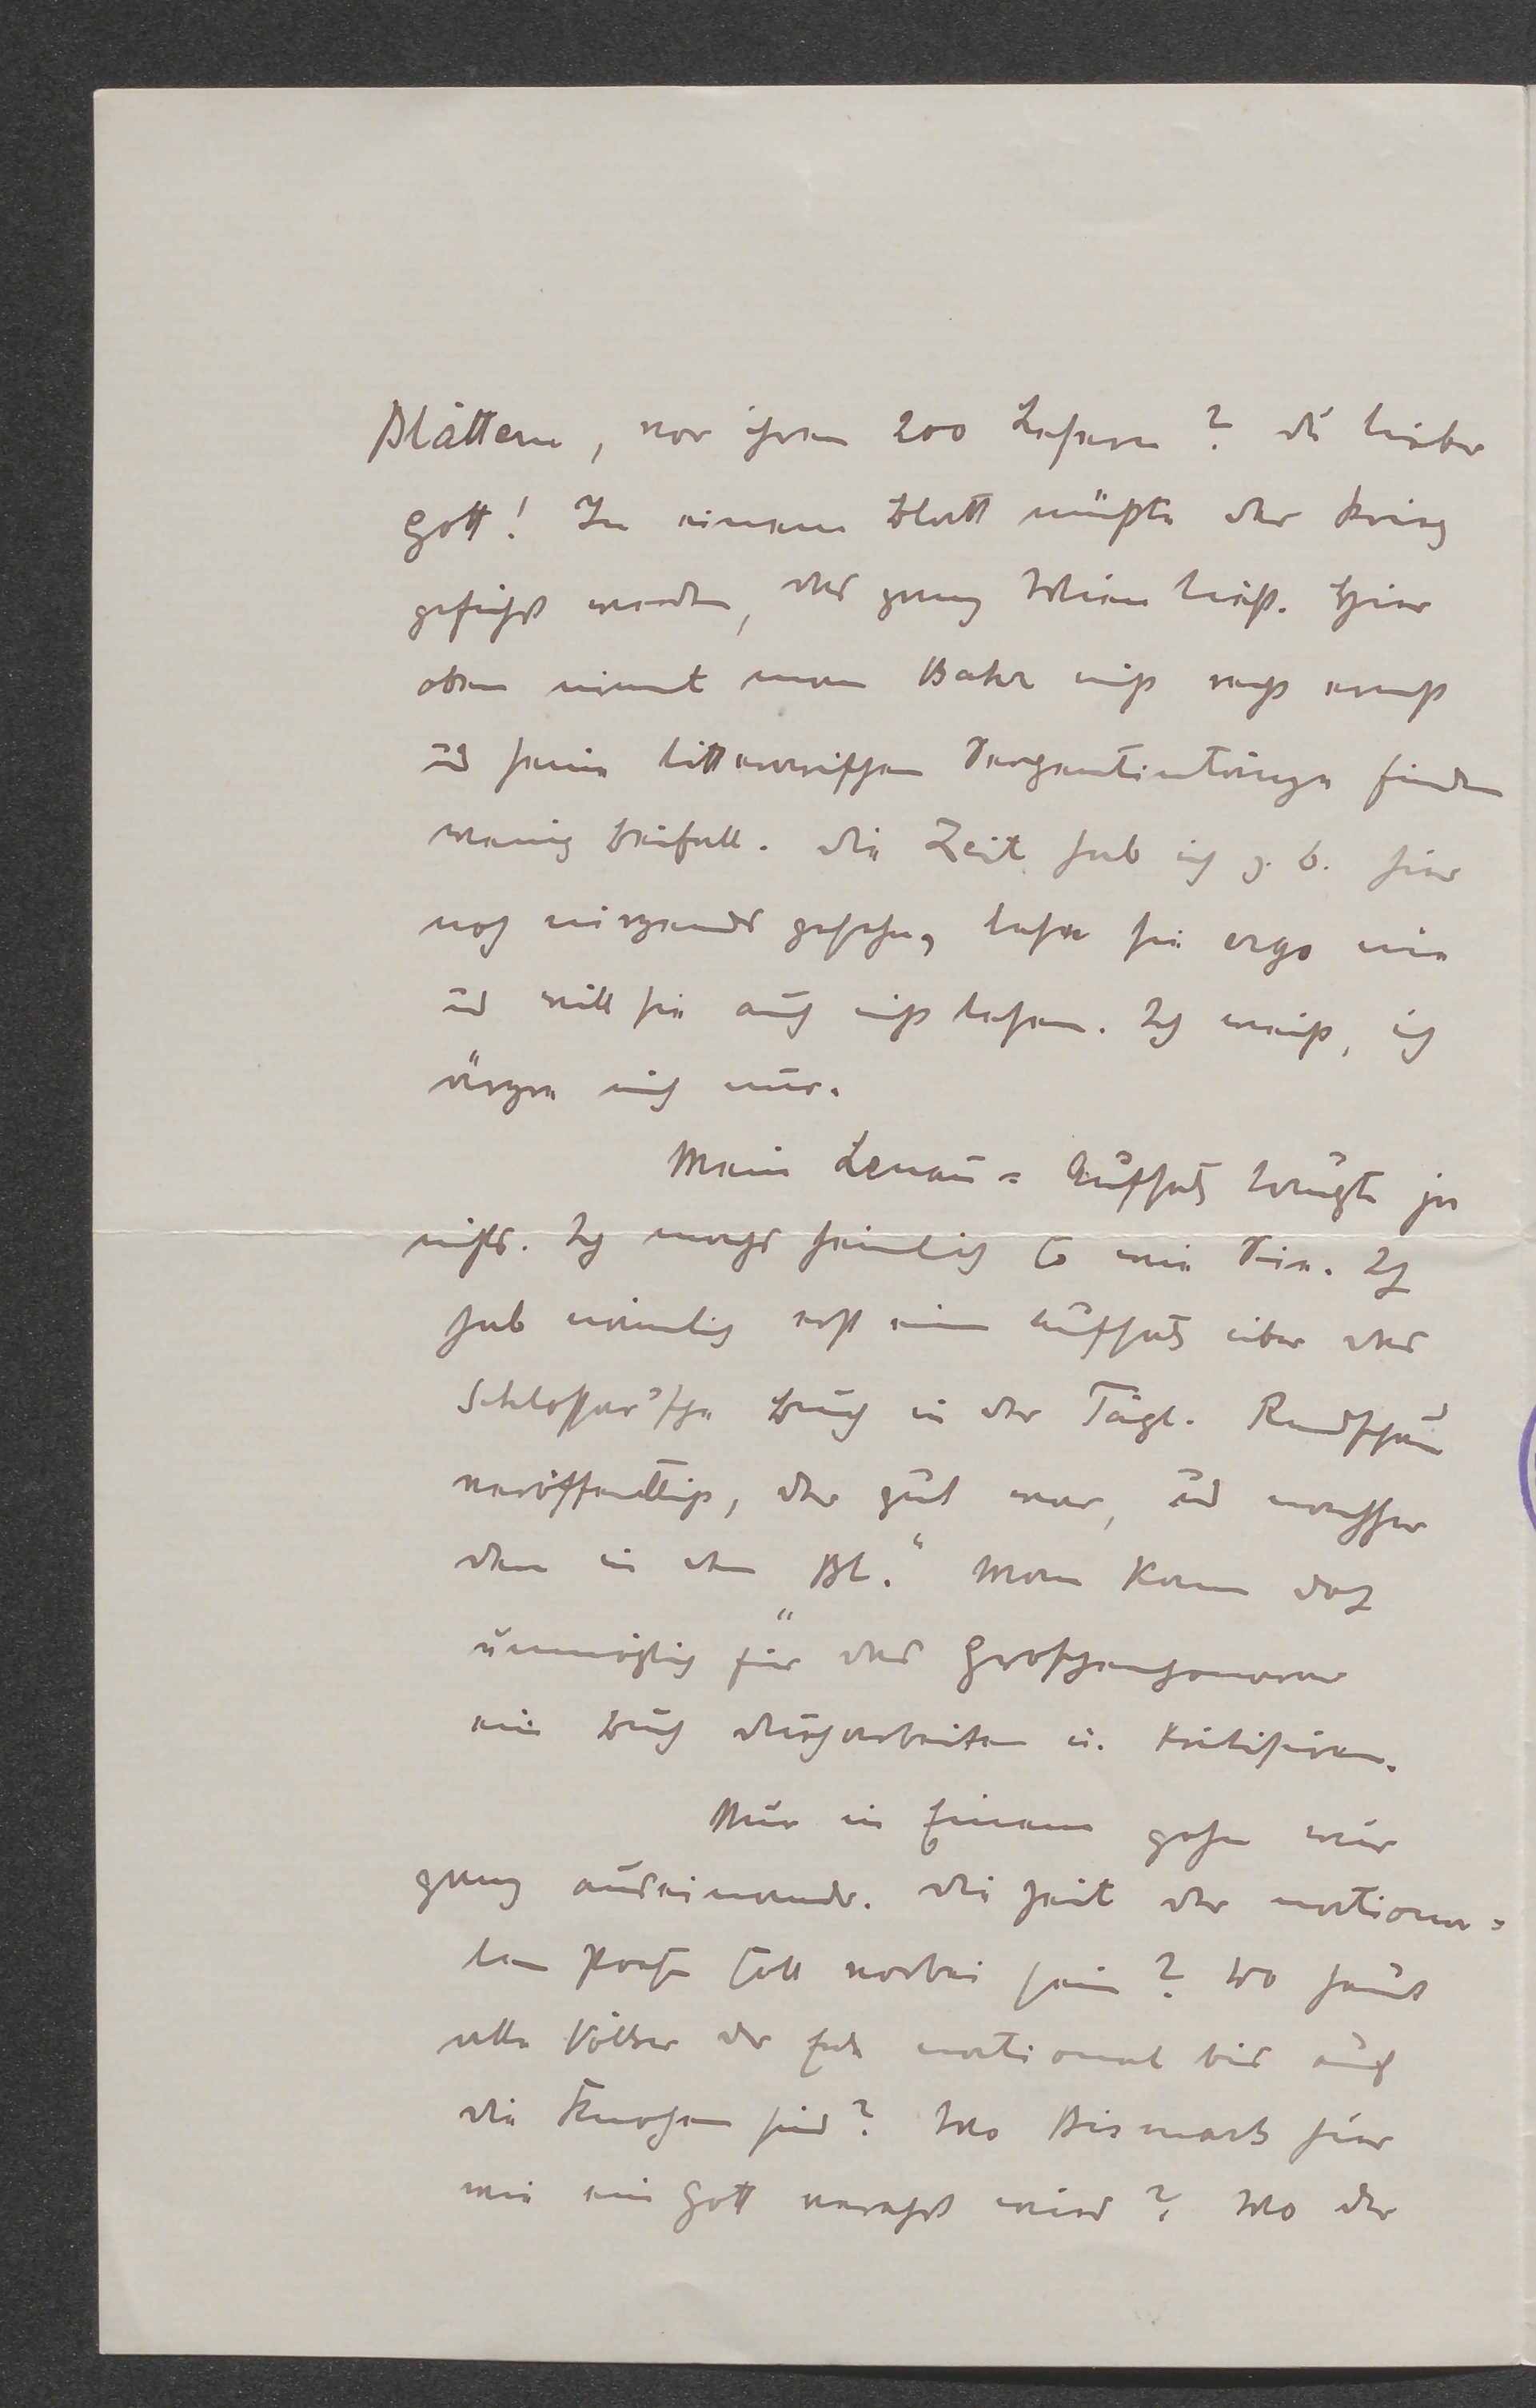 Blättern, vor ihren 200 Lesern? Du lieber
Gott! In einem Blatt müßte der Krieg
geführt werden, das ganz Wien liest. Hier
oben nimmt man Bahr nicht recht ernst
und seine litterarischen Serpentintänze finden
wenig Beifall. Die Zeit hab ich z. B. hier
noch nirgends gesehn, lese sie ergo nie
und will sie auch nicht lesen. Ich weiß, ich
ärgre mich nur.
Mein Lenau-Aufsatz taugte ja
nichts. Ich machs heimlich so wie Sie. Ich
hab nämlich erst ein Aufsatz über das
Schlossar'sche Buch in der Tägl. Rundschau
veröffentlicht, der gut war, und nachher
den in den „Bl." Man kann doch
unmöglich für das Groschenhonorar
ein Buch durcharbeiten u. kritisiren.
Nur in Einem gehn wir
ganz auseinander. Die Zeit der nationa-
len Poesie soll vorbei sein? Wo heut
alle Völker der Erde national bis auf
die Knochen sind? Wo Bismarck hier
wie ein Gott verehrt wird? Wo der